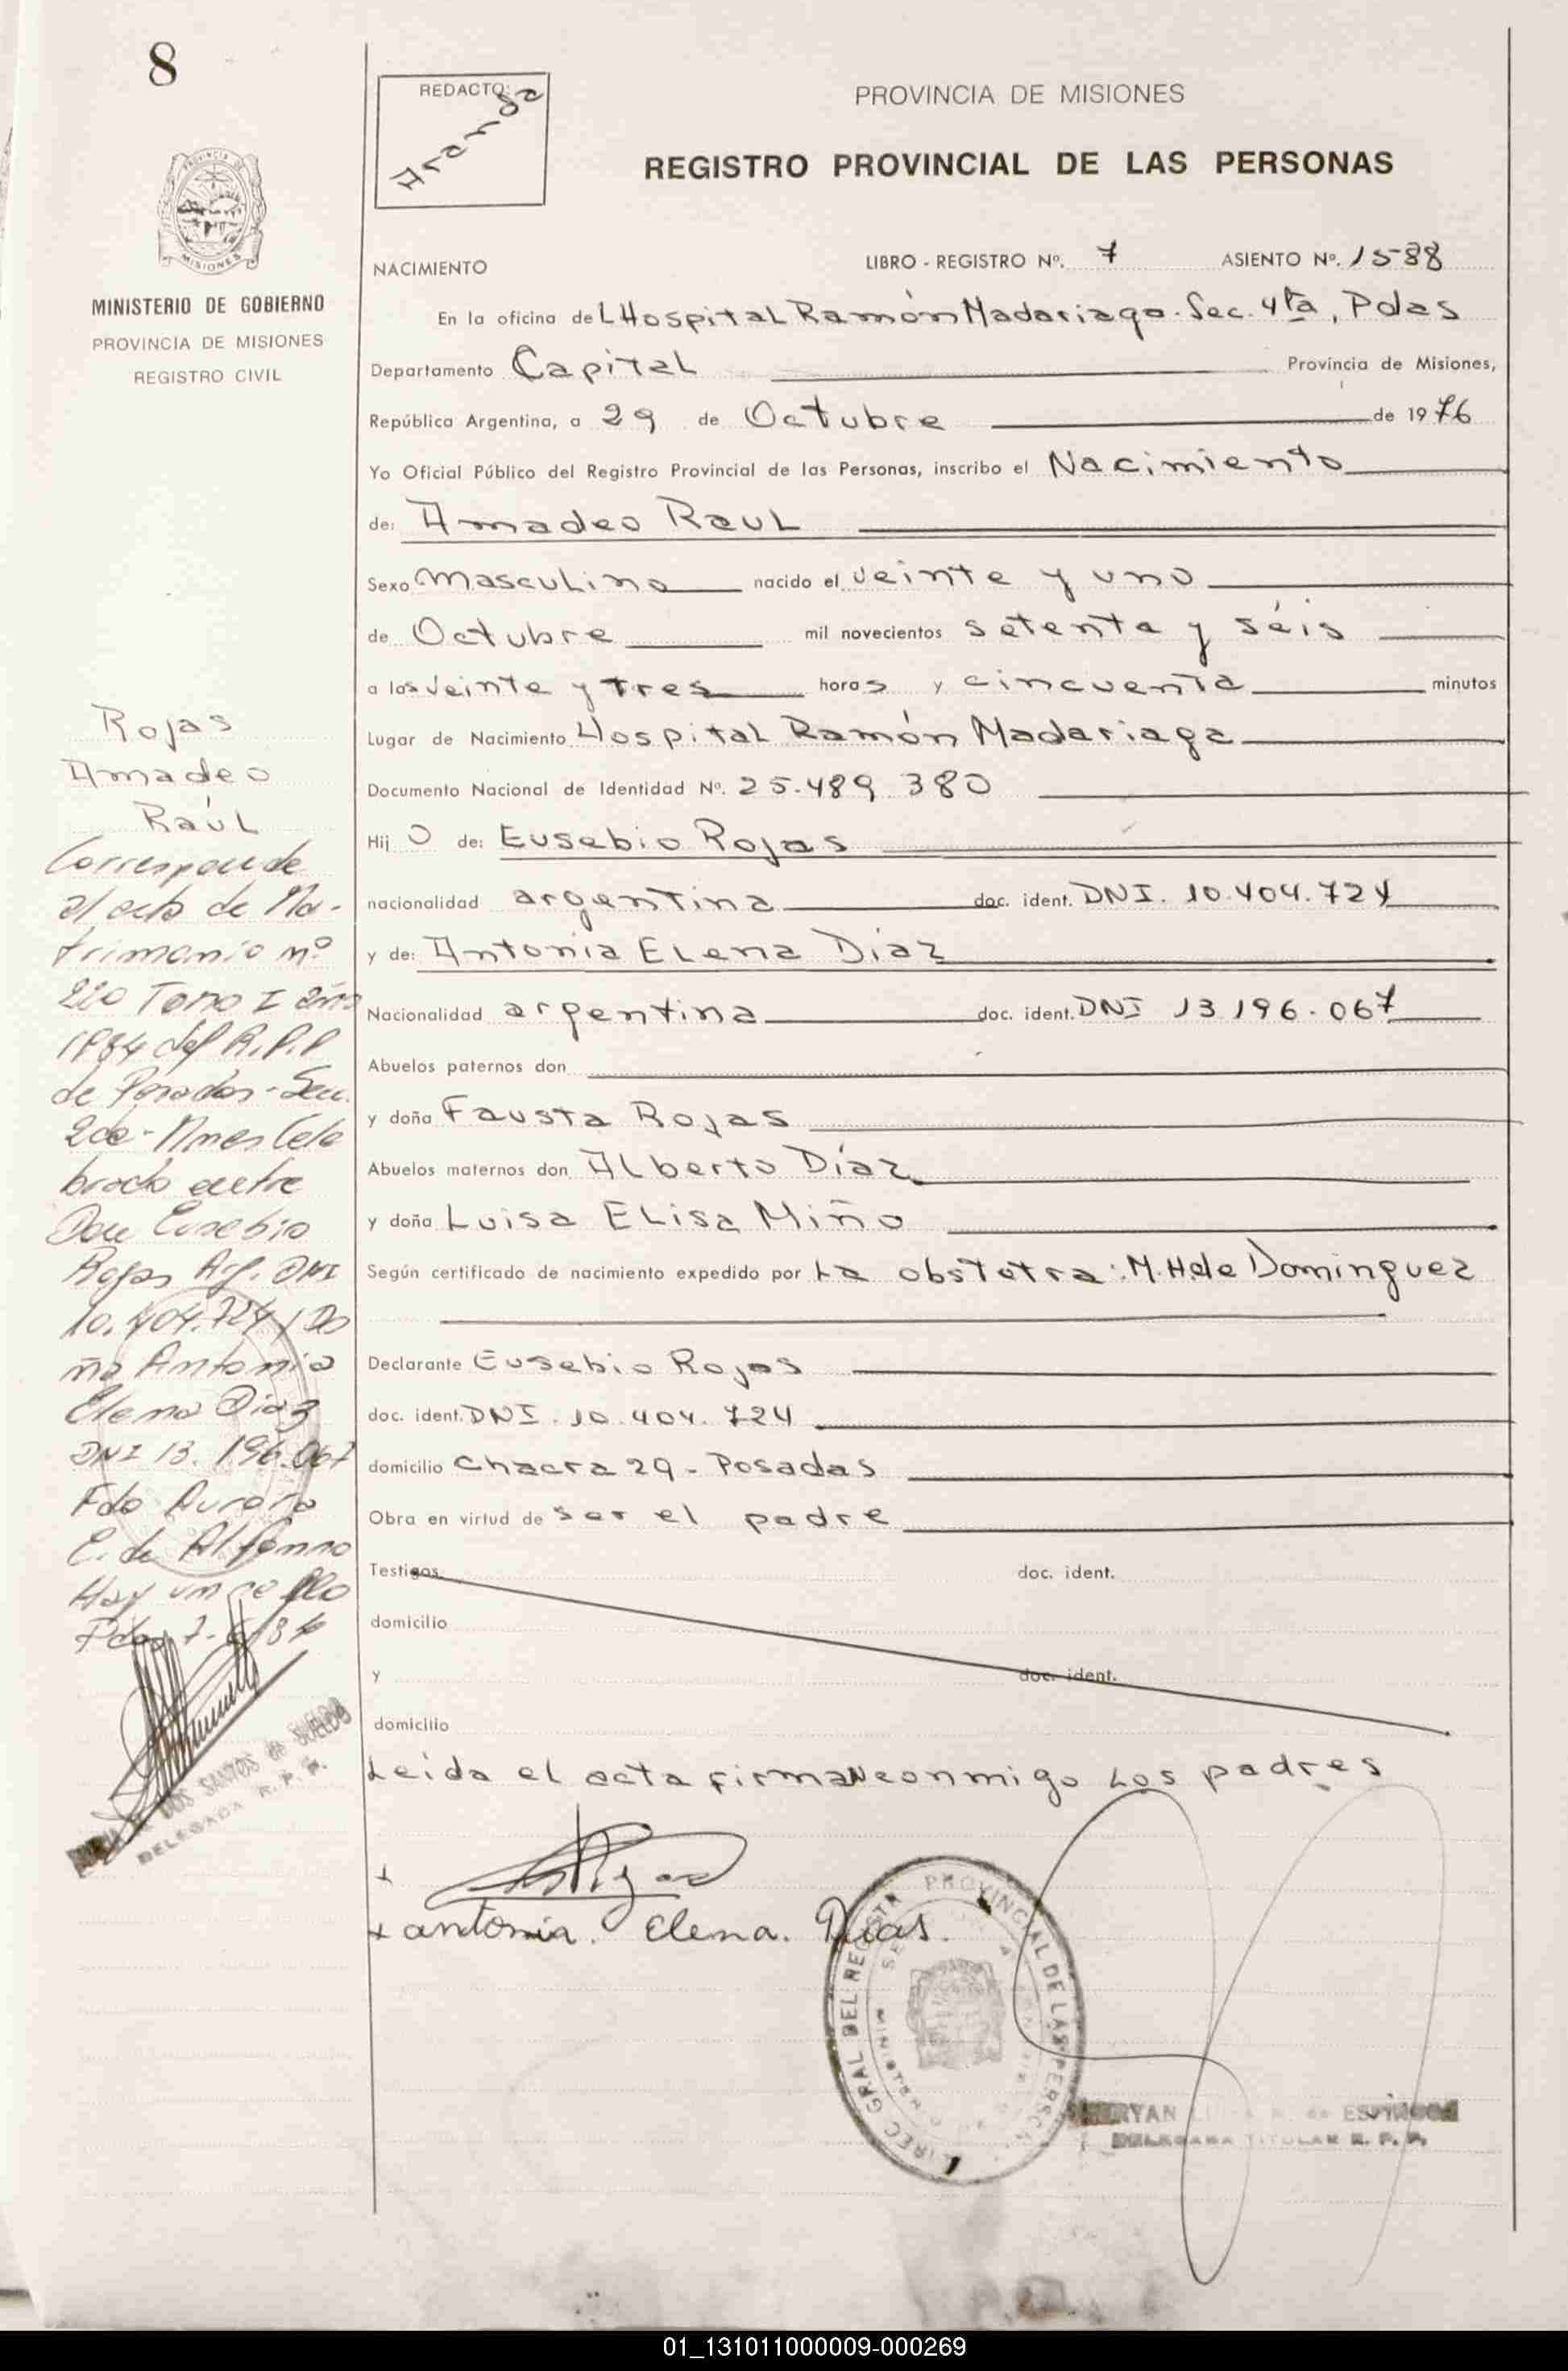 8
REDACTO:
Aranda
PROVINCIA DE MISIONES
REGISTRO PROVINCIAL DE LAS PERSONAS
PROVINCIA DE
MISIONES
MINISTERIO DE GOBIERNO
PROVINCIA DE MISIONES
REGISTRO CIVIL
NACIMIENTO LIBRO - REGISTRO Nº. 7 ASIENTO Nº. 1588
En la oficina del Hospital Ramón Madariaga. Sec. 4ta, Pdas
Departamento Capital Provincia de Misiones,
República Argentina, a 29 de Octubre de 1976
Yo Oficial Público del Registro Provincial de las Personas, inscribo el Nacimiento
de: Amadeo Raul
Sexo masculino nacido el veinte y uno
de Octubre mil novecientos setenta y séis
a las veinte y tres horas y cincuenta minutos
Lugar de Nacimiento Hospital Ramón Madariaga
Documento Nacional de Identidad Nº. 25.489 380
Hij o de: Eusebio Rojas
nacionalidad argentina doc. ident. DNI. 10.404.724
y de: Antonia Elena Díaz
Nacionalidad argentina doc. ident. DNI 13 196.067
Abuelos paternos don
y doña Fausta Rojas
Abuelos maternos don Alberto Díaz
y doña Luisa Elisa Miño
Según certificado de nacimiento expedido por La obstetra: M.H.de Dominguez
Declarante Eusebio Rojas
doc. ident. DNI. 10.404.724
domicilio Chacra 29 - Posadas
Obra en virtud de ser el padre
Testigos doc. ident.
domicilio
y doc. ident.
domicilio
Leida el acta firman conmigo Los padres
x
x antonia. Elena. Dias.
DIREC GRAL DEL REGISTRO PROVINCIAL DE LAS PERSONAS
de ESPINOSA
DELEGADA TITULAR R. P. P.
Rojas
Amadeo
Raúl
Corresponde
al acta de Ma-
trimonio nº
220 Tomo I año
1984 del R.P.P
de Posadas - Sec.
2da - Mnes Cele
brado entre
Don Eusebio
Rojas Arg. DNI
10.404.724 y Do
ña Antonia
Elena Diaz
DNI 13. 196.067
Fdo Aurora
E. de Alfonso
Hay un sello
Pdas 7-6-84
DOS SANTOS de SUELDO
DELEGADA R. P. P.
01_131011000009-000269